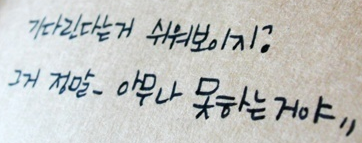 기다린다는거 쉬워보이지?
그거 정말- 아무나 못하는거야,,